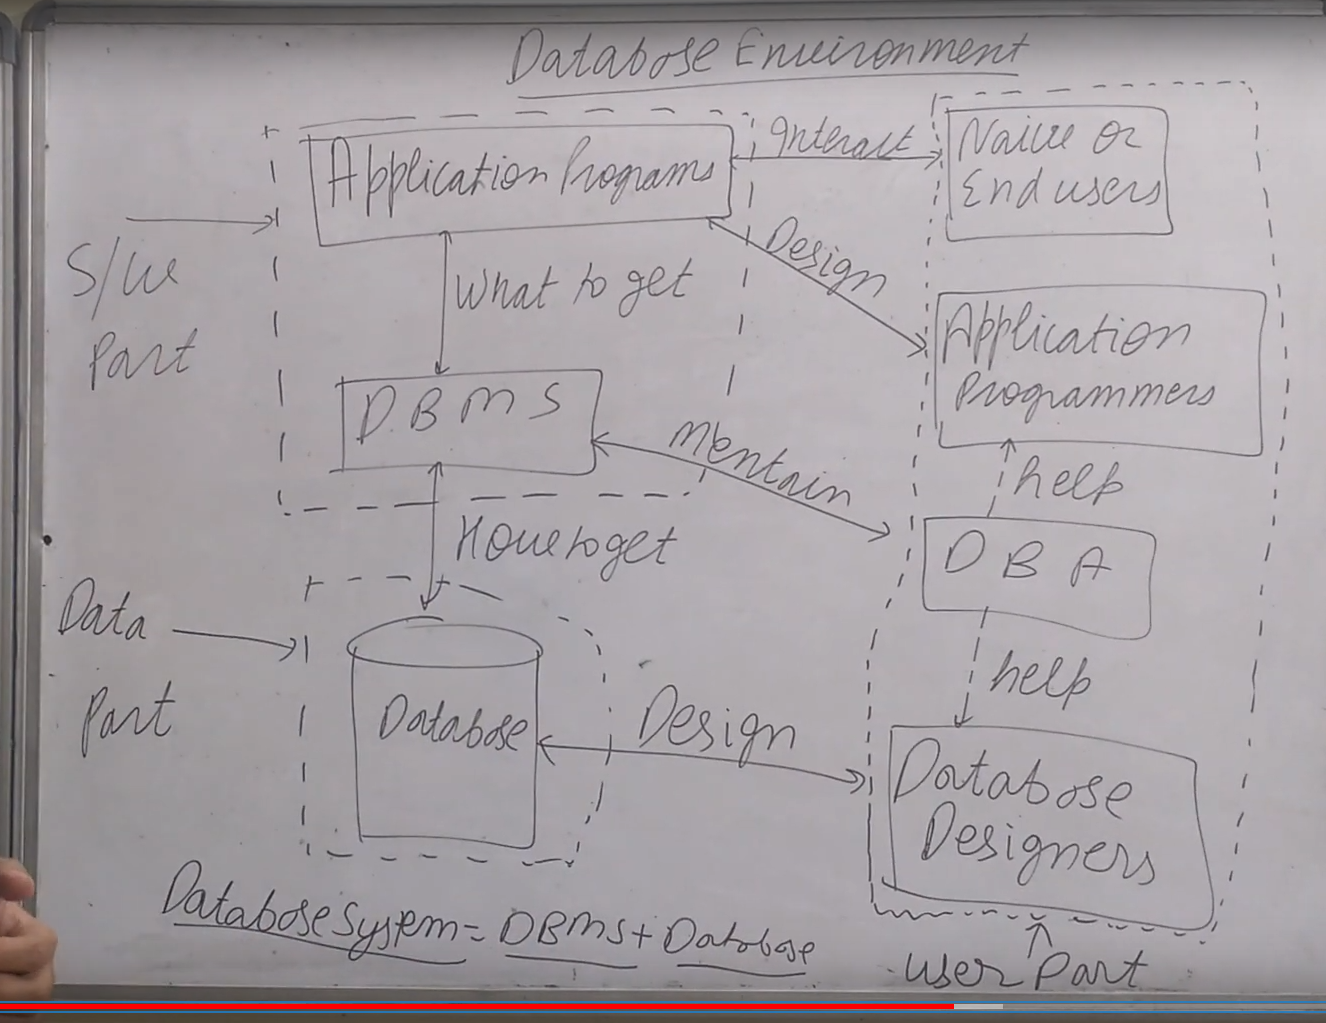 Database Environment
Application Programs
Interact
Naive or
End users
S/W
Part
What to get
Design
Application
Programmers
DBMS
Mentain
help
How to get
DBA
Data
Part
help
Database
Design
Database
Designers
Database System = DBMS + Database
User Part